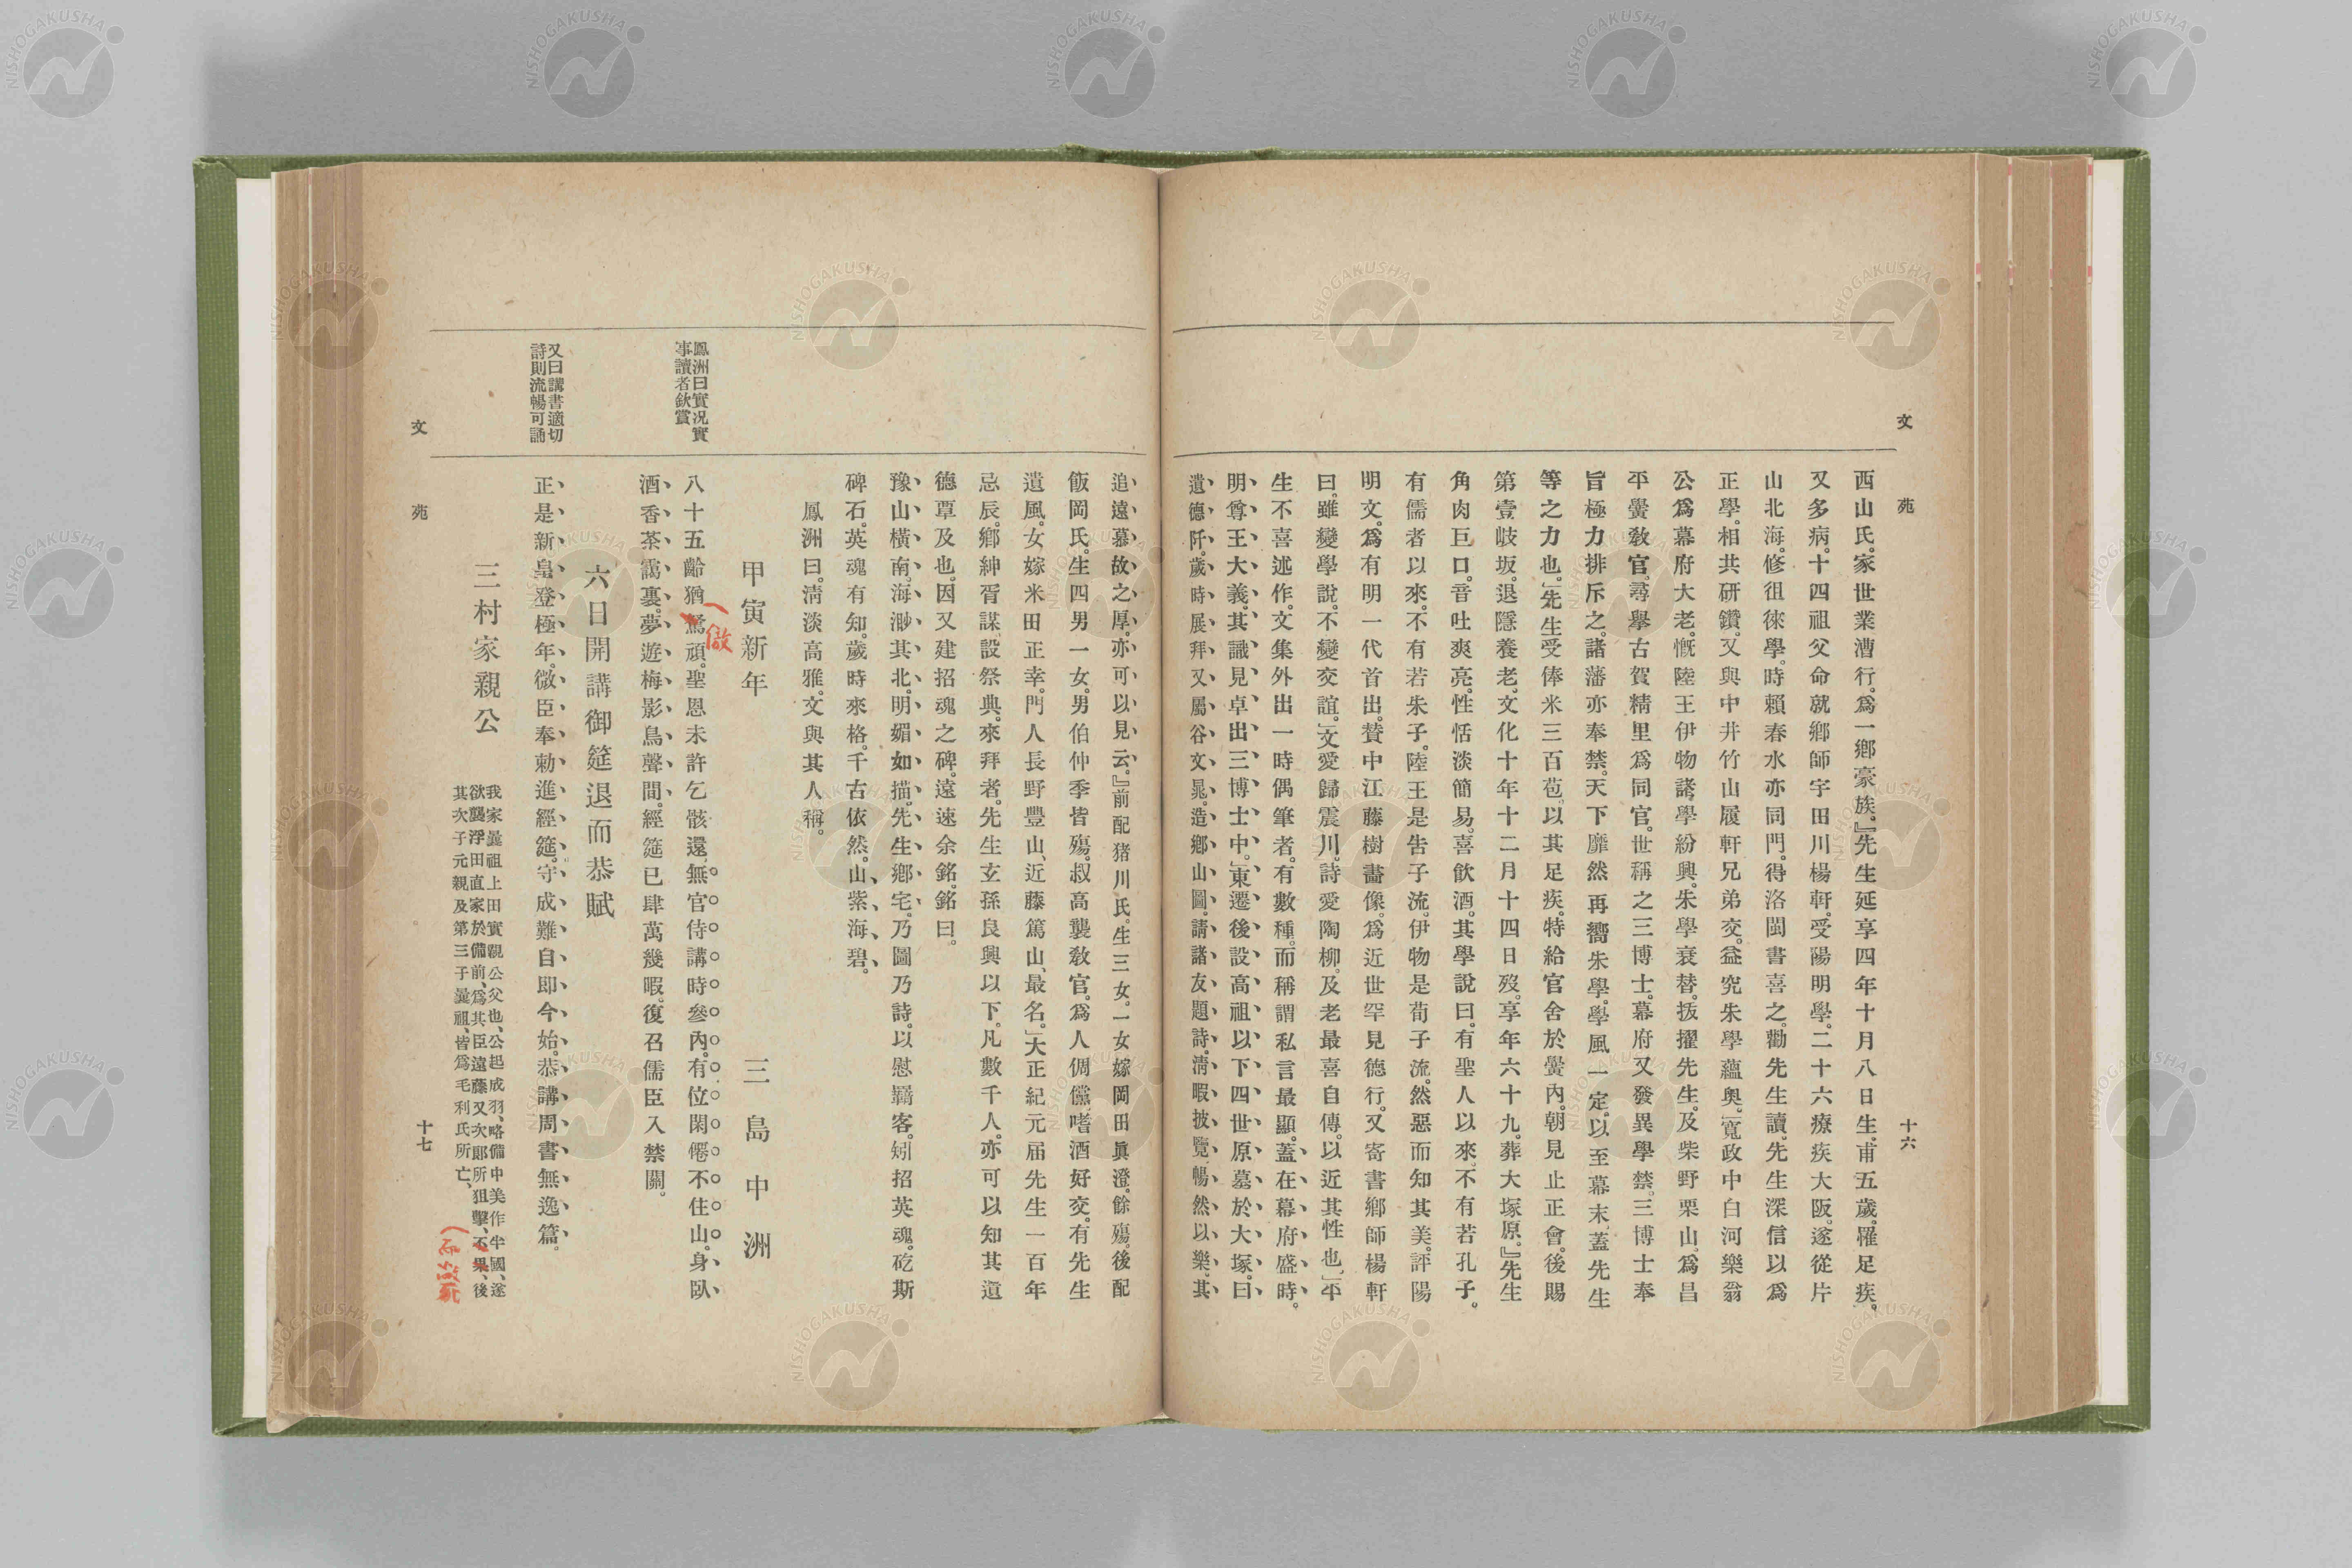 文苑
十六
西山氏。家世業漕行。爲一鄕豪族。』先生延享四年十月八日生。甫五歲。罹足疾。
又多病。十四祖父命就鄕師宇田川楊軒。受陽明學。二十六療疾大阪。遂從片
山北海。修徂徠學。時賴春水亦同門。得洛閩書喜之。勸先生讀。先生深信以爲
正學。相共硏鑽。又與中井竹山履軒兄弟交。益究朱學蘊奧。」寬政中白河樂翁
公爲幕府大老。慨陸王伊物諸學紛興。朱學衰替。拔擢先生。及柴野栗山。爲昌
平黌敎官。尋擧古賀精里爲同官。世稱之三博士。幕府又發異學禁。三博士奉
旨極力排斥之。諸藩亦奉禁。天下靡然再嚮朱學。學風一定。以至幕末。蓋先生
等之力也。」先生受俸米三百苞。以其足疾。特給官舍於黌內。朝見止正會。後賜
第壹岐坂。退隱養老。文化十年十二月十四日歿。享年六十九。葬大塚原。』先生
角肉巨口。音吐爽亮。性恬淡簡易。喜飮酒。其學說曰。有聖人以來。不有若孔子。
有儒者以來。不有若朱子。陸王是告子流。伊物是荀子流。然惡而知其美。評陽
明文。爲有明一代首出。贊中江藤樹畫像。爲近世罕見德行。又寄書鄕師楊軒
曰。雖變學說。不變交誼。」文愛歸震川。詩愛陶柳。及老最喜自傳。以近其性也。」平
生不喜述作。文集外出一時偶筆者。有數種。而稱謂私言最顯。蓋在幕府盛時。
明尊王大義。其識見卓出三博士中。」東遷後設高祖以下四世原墓於大塚。曰
遺德阡。歲時展拜。又屬谷文晁。造鄕山圖。請諸友題詩。淸暇披覽。暢然以樂。其
追遠慕故之厚。亦可以見云。』前配猪川氏。生三女。一女嫁岡田眞澄。餘殤。後配
飯岡氏。生四男一女。男伯仲季皆殤。叔高襲敎官。爲人倜儻。嗜酒好交。有先生
遺風。女嫁米田正幸。門人長野豐山、近藤篤山、最名。」大正紀元屆先生一百年
忌辰。鄕紳胥謀。設祭典。來拜者。先生玄孫良興以下。凡數千人。亦可以知其遺
德覃及也。因又建招魂之碑。遠速余銘。銘曰。
豫山橫南。海渺其北。明媚如描。先生鄕宅。乃圖乃詩。以慰羈客。矧招英魂。矻斯
碑石。英魂有知。歲時來格。千古依然。山紫海碧。
鳳洲曰。淸淡高雅。文與其人稱。
甲寅新年
三島中洲
鳳洲曰實况實
事讀者欽賞
八十五齡猶驁頑。聖恩未許乞骸還。無官侍講時參內。有位閑僊不住山。身臥
傲
酒香茶靄裏。夢遊梅影鳥聲間。經筵已肆萬幾暇。復召儒臣入禁關。
六日開講御筵退而恭賦
又曰講書適切
詩則流暢可誦
正是新皇登極年。微臣奉勅進經筵。守成難自卽今始。恭講周書無逸篇。
三村家親公
我家曩祖上田實親公父也、公起成羽、略備中美作半國、遂
欲襲浮田直家於備前、爲其臣遠藤又次郞所狙擊、不果、後
其次子元親及第三子曩祖、皆爲毛利氏所亡、
文苑
十七